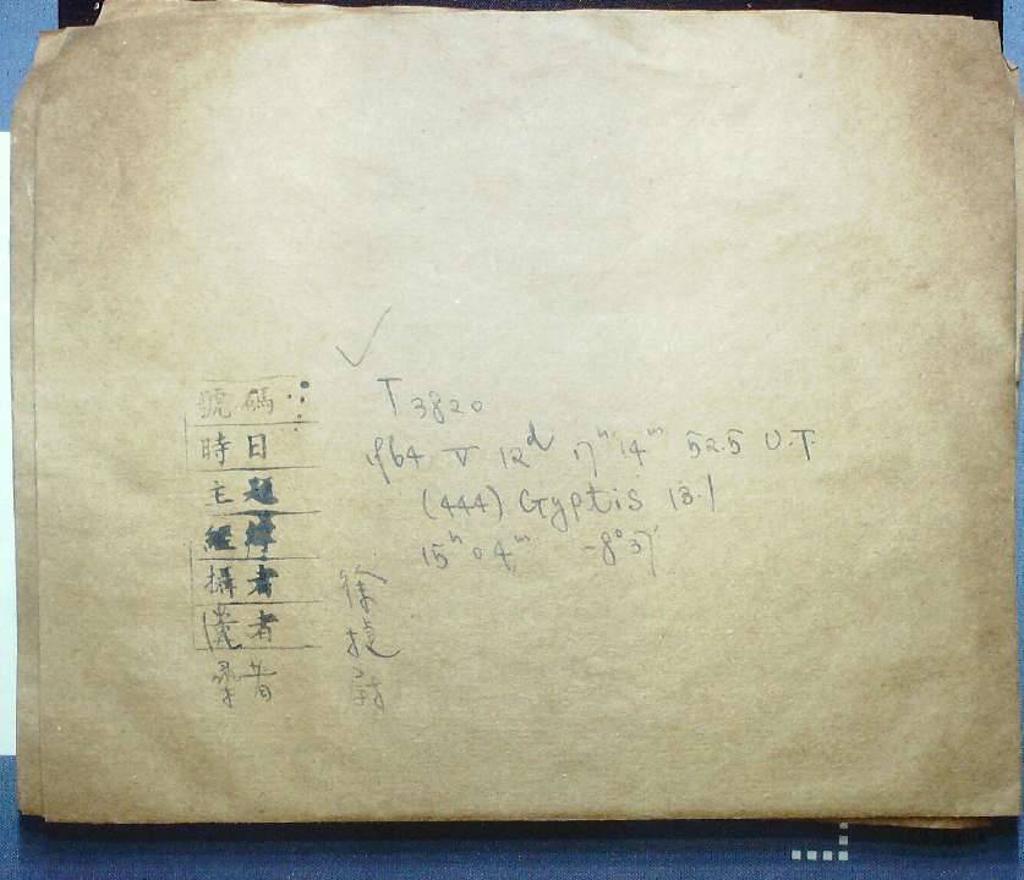 號碼
T 3820
時日
1964 V 12ᵈ 17ʰ 14ᵐ 52.5 U.T.
主題
(444) Gyptis 13.1
經緯
15ʰ 04ᵐ -8°37'
攝者
者